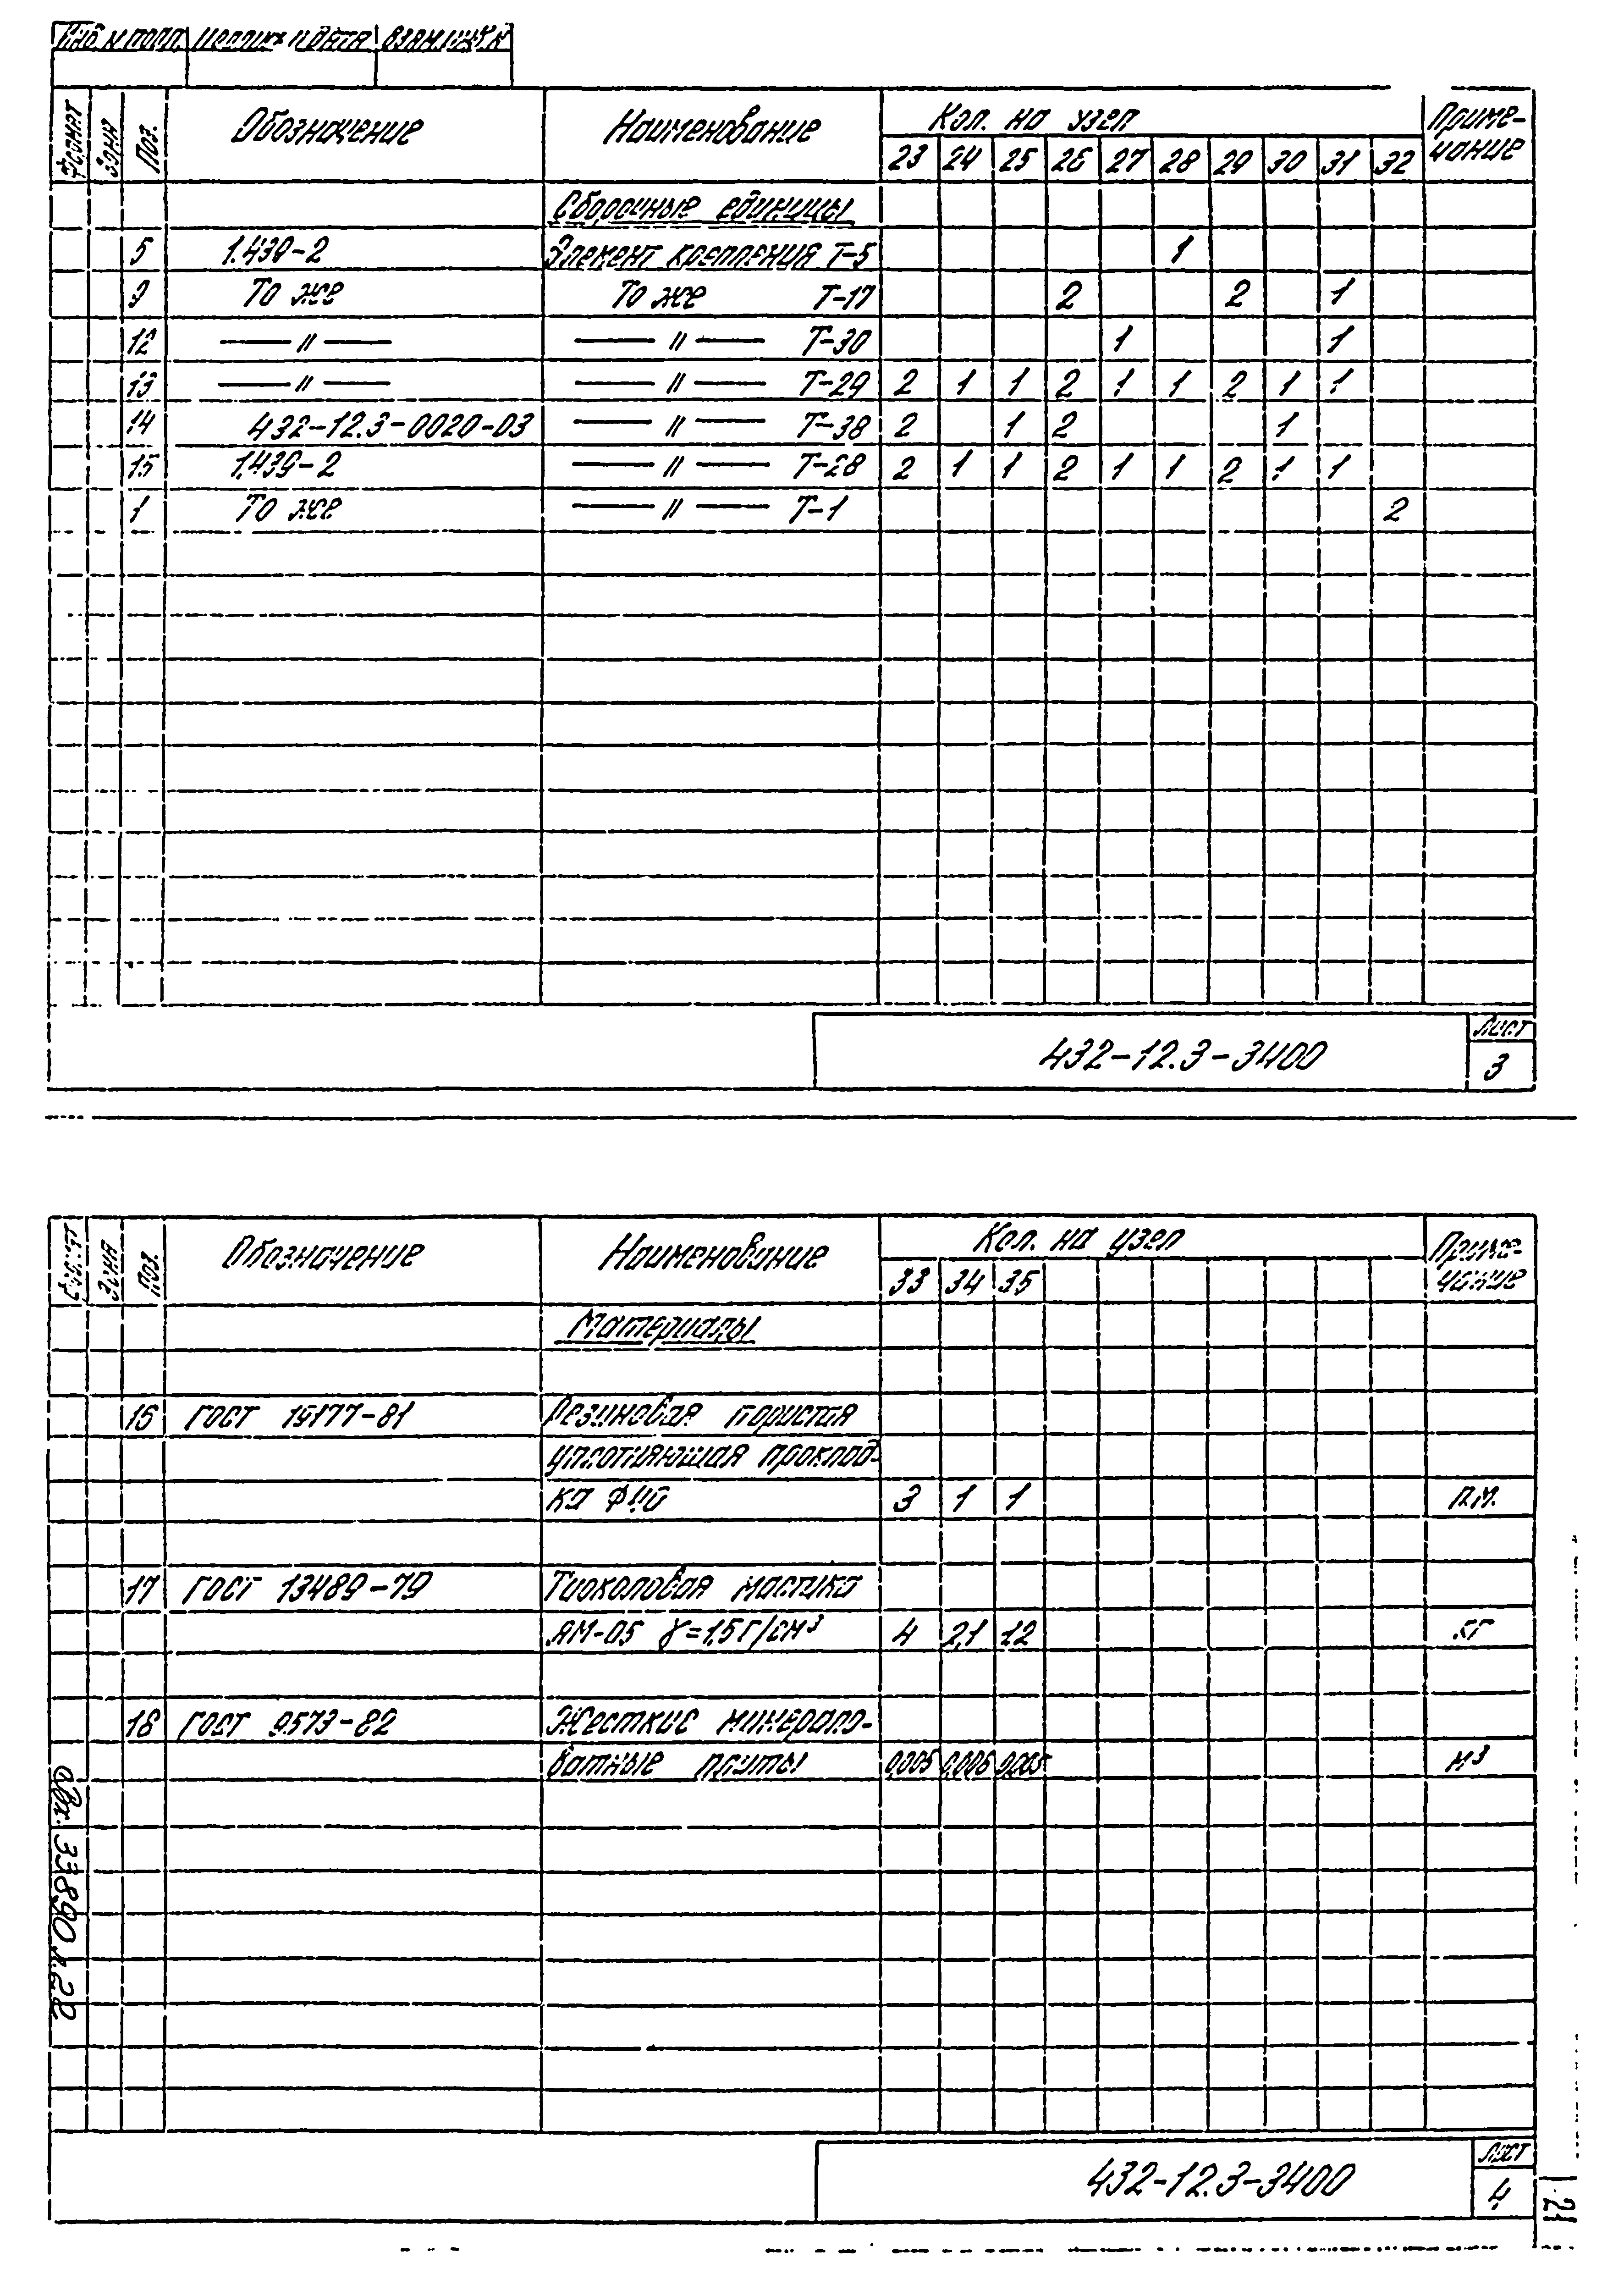 Инв. N подл. Подпись и дата Взам. инв. N
Формат Зона Поз. Обозначение Наименование Кол. на узел Приме-
23 24 25 26 27 28 29 30 31 32 чание
Сборочные единицы
5 1.439-2 Элемент крепления Т-5 1
9 То же То же Т-17 2 2 1
12 — " — — " — Т-30 1 1
13 — " — — " — Т-29 2 1 1 2 1 1 2 1 1
14 432-12.3-0020-03 — " — Т-38 2 1 2 1
15 1.439-2 — " — Т-28 2 1 1 2 1 1 2 1 1
1 То же — " — Т-1 2
432-12.3-3400
Лист
3
Формат Зона Поз. Обозначение Наименование Кол. на узел Приме-
33 34 35 чание
Материалы
16 ГОСТ 19177-81 Резиновая пористая
уплотняющая проклад-
ка 3 1 1 п.м.
17 ГОСТ 13489-79 Тиоколовая мастика
АМ-05 γ=1,5 Г/см³ 4 2,1 1,2 кг
18 ГОСТ 9573-82 Жесткие минерало-
ватные плиты 0,005 0,006 0,005 м³
432-12.3-3400
Лист
4
33890 л.22